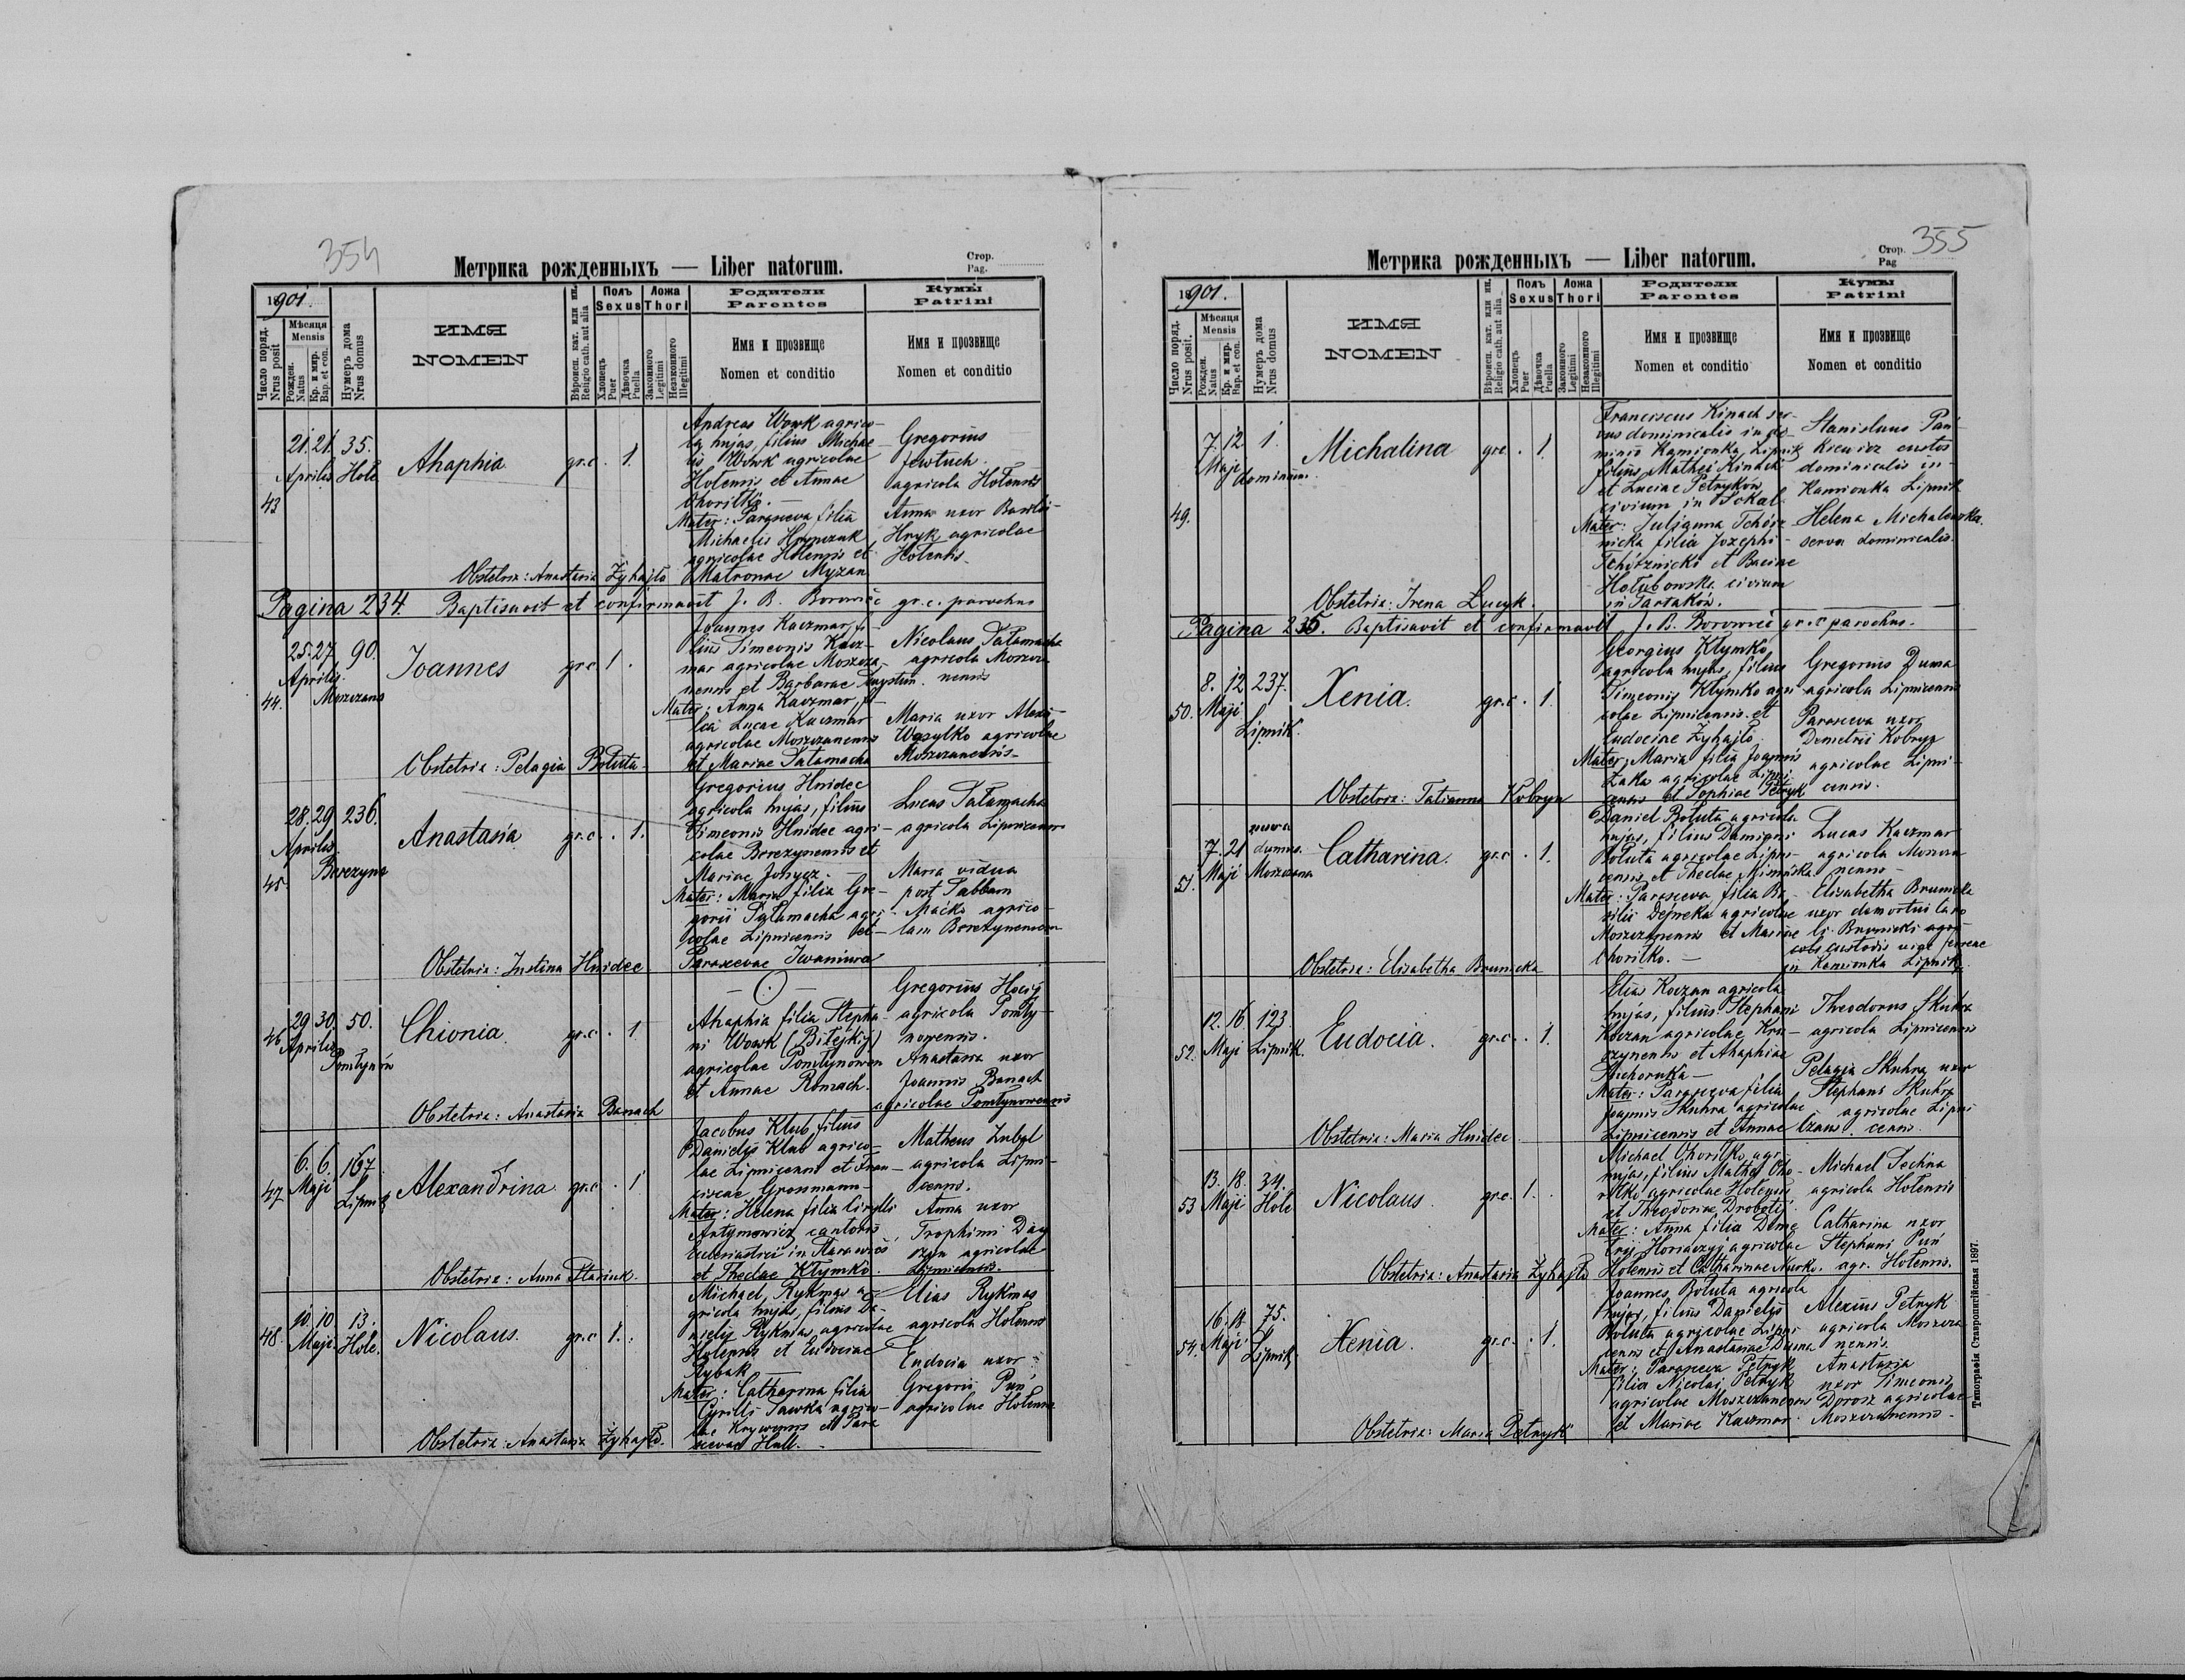 354
Метрика рожденныхъ — Liber natorum.
Стор.
Pag.
1901.
Число поряд.
Nrus posit
Мѣсяця
Mensis
Рожден.
Natus
Кр. и мир.
Bap. et con.
Нумеръ дома
Nrus domus
ИМЯ
NOMEN
Вѣроисп. кат. или ин.
Religio cath. aut alia
Полъ
Sexus
Хлопецъ
Puer
Дѣвочка
Puella
Ложа
Thori
Законного
Legitimi
Незаконного
Illegitimi
Родители
Parentes
Имя и прозвище
Nomen et conditio
Кумы
Patrini
Имя и прозвище
Nomen et conditio
43
21. 21. 35.
Aprilis Hole
Ahaphia
gr.c. . 1.
Andreas Wowk agrico-
la hujas, filius Michae-
lis Wowk agricolae
Holensis et Annae
Chorilko. —
Mater: Parasceva filia
Michaelis Hrynczuk
agricolae Holensis et
Matronae Myzan
Gregorius
Jewtuch
agricola Holensis
Anna uxor Basilii
Hryk agricolae
Holensis
Obstetrix: Anastasia Żyhajło
Pagina 234. Baptisavit et confirmavit J. B. Borowiec gr. c. parochus
44.
25. 27. 90.
Aprilis
Moszczana
Joannes
gr.c. 1 .
Joannes Kaczmar, fi-
lius Simeonis Kacz-
mar agricolae Moszcza-
nensis et Barbarae
Mater: Anna Kaczmar, fi-
lia Lucae Kaczmar
agricolae Moszczanensis
et Mariae Tatamacha
Nicolaus Tatamacha
agricola Moszcza-
nensis
Maria uxor Alexii
Wasylko agricolae
Moszczanensis
Obstetrix: Pelagia Bołuta
45
28. 29. 236.
Aprilis
Berezyna
Anastasia
gr.c. . 1.
Gregorius Hnidec
agricola hujas, filius
Simeonis Hnidec agri-
colae Berezynensis et
Mariae
Mater: Maria filia Gre-
gorii Tatamacha agri-
colae Lipnicensis et
Parascevae Iwaniura
Lucas Tatamacha
agricola Lipnicensis
Maria vidua
post Sabbam
Maćko agrico-
lam Berezynensem
Obstetrix: Justina Hnidec
46
29 30. 50.
Aprilis
Pomłynów
Chionia.
gr.c. . 1
Ahaphia filia Stepha-
ni Wowk (Bilejkij)
agricolae Pomłynowen
et Annae Romach.
Gregorius
agricola Pomły-
nowensis.
Anastasia uxor
Joannis Banach
agricolae Pomłynowensis
Obstetrix: Anastasia Banach
47
6. 6. 167.
Maji Lipnik
Alexandrina
gr.c. . 1
Jacobus Klub filius
Danielis Klub agrico-
lae Lipnicensis et Fran-
ciscae Grossmann
Mater: Helena filia Cirylli
Antymowicz cantoris
ecclesiastici in
et Theclae Klymko.
Matheus Zubyl
agricola Lipni-
censis.
Anna uxor
Trophimi
agricolae
Lipnicensis.
Obstetrix: Anna Stasiuk.
48.
10. 10 13.
Maji. Hole.
Nicolaus.
gr.c 1. .
Michael Rykmas a-
gricola hujas, filius Da-
nielis Rykmas agricolae
Holensis et Eudociae
Rybak
Mater: Catharina filia
Cyrilli Sawka agrico-
lae Krywensis et Para-
scevae Hall.
Elias Rykmas
agricola Holensis
Eudocia uxor
Gregorii Puń
agricolae Holensis
Obstetrix: Anastasia Żyhajło.
Метрика рожденныхъ — Liber natorum.
Стор.
Pag
355
1901.
Число поряд.
Nrus posit.
Мѣсяця
Mensis
Рожден.
Natus
Кр. и мир.
Bap. et con.
Нумеръ дома
Nrus domus
ИМЯ
NOMEN
Вѣроисп. кат. или ин.
Religio cath. aut alia
Полъ
Sexus
Хлопецъ
Puer
Дѣвочка
Puella
Ложа
Thori
Законного
Legitimi
Незаконного
Illegitimi
Родители
Parentes
Имя и прозвище
Nomen et conditio
Кумы
Patrini
Имя и прозвище
Nomen et conditio
49.
7. 12 1.
Maji dominium.
Michalina
gr.c . 1
Franciscus Kinach ser-
vus dominicalis in do-
minio Kamionka Lipnik
filius Mathei Kinach
et Luciae Petryków
civium in Sokal
Mater: Julianna Tchórz-
nicka filia Josephi
Tchórznicki et
Hołubowska civium
in Tartaków.
Stanislaus Pan-
kiewicz custos
dominicalis in
Kamionka Lipnik
Helena Michalewska
serva dominicalis.
Obstetrix: Irena Lucyk.
Pagina 235. Baptisavit et confirmavit J. B. Borowiec gr. c. parochus.
50.
8. 12 237.
Maji Lipnik.
Xenia.
gr.c. . 1.
Georgius Klymko,
agricola hujas, filius
Simeonis Klymko agri-
colae Lipnicensis et
Eudociae Żyhajło
Mater: Maria filia Joannis
Łaka agricolae Lipni-
censis et Sophiae Petryk
Gregorius Duma
agricola Lipnicensis
Parasceva uxor
Demetrii Kobryn
agricolae Lipni-
censis.
Obstetrix: Tatianna Kobryn
51.
7. 21 nova domus.
Maji Moszczana
Catharina.
gr.c. . 1.
Daniel Boluta agricola
hujas, filius Damiani
Boluta agricolae Lipni-
censis et Theclae
Mater: Parasceva filia Ba-
silii Dejneka agricolae
Moszczanensis et Mariae
Chorilko. —
Lucas Kaczmar
agricola Moszcza-
nensis
Elisabetha Brunicka
uxor
Brunicki agri-
colae custodis viae ferreae
in Kamionka Lipnik.
Obstetrix: Elisabetha Brunicka
52.
12. 16. 123.
Maji Lipnik.
Eudocia.
gr.c. . 1.
Elias Koczan agricola
hujas, filius Stephani
Koczan agricolae
et Ahaphiae
Mater: Parasceva filia
Joannis Skuhra agricolae
Lipnicensis et Annae
Theodorus Skuhra
agricola Lipnicensis
Pelagia Skuhra uxor
Stephani Skuhra
agricolae Lipni-
censis.
Obstetrix: Maria Hnidec
53
13. 18. 34.
Maji Hole
Nicolaus.
gr.c. 1. .
Michael Chorilko agr.
hujas, filius Mathei Cho-
rilko agricolae Holensis
et Theodoriae Drobotij.
Mater: Anna filia Deme-
trij agricolae
Holensis et Catharinae
Michael Sechna
agricola Holensis
Catharina uxor
Stephani Puń
agr. Holensis.
Obstetrix: Anastasia Żyhajło
54.
16. 18 75.
Maji Lipnik
Xenia.
gr.c. . 1.
Joannes Boluta agricola
hujas, filius Danielis
Boluta agricolae Lipni-
censis et Anastasiae Duma
Mater: Parasceva Petryk
filia Nicolai Petryk
agricolae Moszczanensis
et Mariae Kaczmar.
Alexius Petryk
agricola Moszcza-
nensis.
Anastasia
uxor Simeonis
Dorosz agricolae
Moszczanensis.
Obstetrix: Maria Petryk
Типографія Ставропигійская 1897.